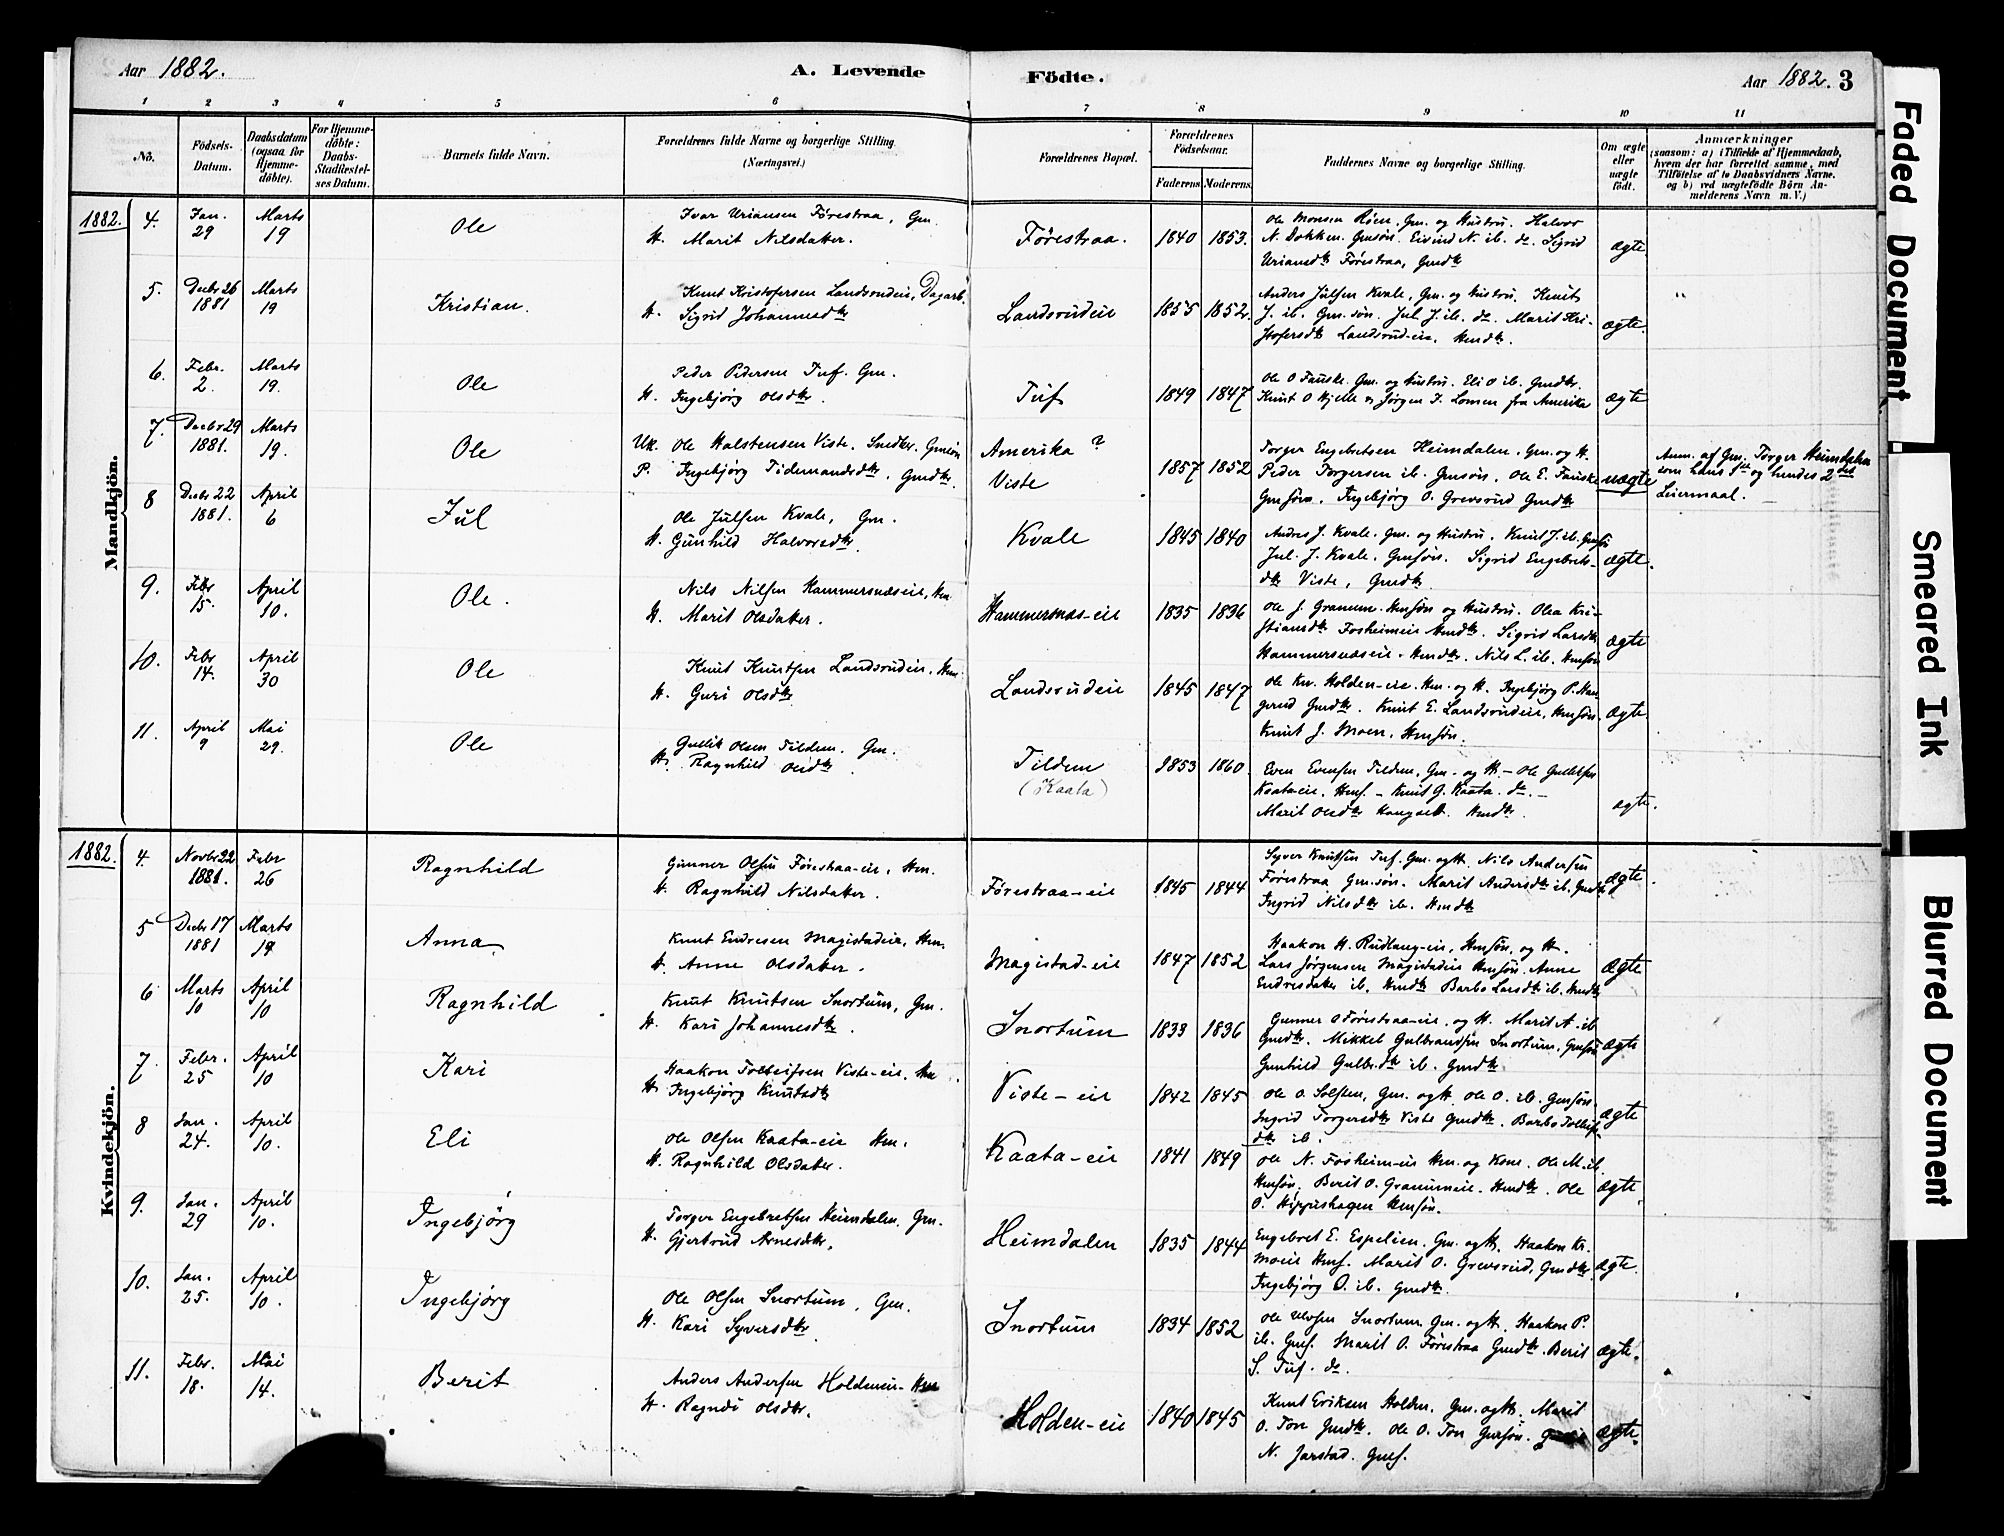 Aar 1882.
A. Levende
Födte.
Aar 1882. 3
1 2 3 4 5 6 7 8 9 10 11
No.
Födsels-
Datum.
Daabsdatum
(ogsaa for
Hjemme-
döbte).
For Hjemme-
döbte:
Daabs-
Stadfæstel-
ses Datum.
Barnets fulde Navn.
Forældrenes fulde Navne og borgerlige Stilling.
(Næringsvei.)
Forældrenes Bopæl.
Forældrenes
Födselsaar.
Faderens Moderens
Faddernes Navne og borgerlige Stilling.
Om ægte
eller
uægte
födt.
Anmærkninger
(saasom: a) i Tilfælde af Hjemmedaab,
hvem der har forrettet samme, med
Tilföielse af to Daabsvidners Navne.
og b) ved uægtefödte Börn An-
melderens Navn m. V.)
Mandkjön.
1882. 4. Jan. 29 Marts 19 Ole
Ivar Uriansen Førestraa, Gm.
H. Marit Nilsdatter.
Førestraa. 1840 1853.
Ole Monsen Röen, Gm. og Hustru. Halvor
N. Dokken. Gmsøn. Eivind N. ib. do. Sigrid
Uriansdtr Førestraa, Gmdtr
ægte
5. Decbr 26 1881 Marts 19 Kristian.
Knut Kristofersen Landsrudeie, Dagarb.
H. Sigrid Johannesdtr
Landsrudeie 1855 1852.
Anders Julsen Kvale, Gm. og Hustru. Knut
J. ib. Gm.søn. Jul J. ib. do. Marit Kri-
stofersdtr Landsrud-eie. Hmdtr.
ægte. "
6. Febr. 2. Marts 19. Ole
Peder Pedersen Tuf. Gm.
H. Ingebjørg Olsdtr.
Tuf 1849 1847
Ole O Fauske. Gm. og Hustru. Eli O ib. Gmdtr.
Knut O Hjelle og Jörgen T. Lomen fra Amerika
ægte
7. Decbr 29 1881. Marts 19. Ole
Uk. Ole Halstensen Viste. Snedker. Gmsøn
P. Ingebjørg Tidemandsdtr, Gmdtr.
Amerika ?
Viste 1857 1852
Torger Engebretsen Heimdalen. Gm. og H.
Peder Torgersen ib. Gmsøn. Ole E. Fauske
Gmsøn. Ingebjörg O. Grevsrud Gmdtr
uægte
Anm. af Gm. Torger Heimdalen
som hans 1ste og hendes 2det
Leiermaal.
8 Decbr 22 1881. April 6 Jul
Ole Julsen Kvale, Gm.
H. Gunhild Halvorsdtr.
Kvale 1845 1840
Anders J. Kvale. Gm. og Hustru. Knut J. ib. Gmsøn
Jul. J. Kvale, Gmsøn. Sigrid Engebrets-
dtr Viste, Gmdtr
ægte.
9. Febr 15. April 10. Ole.
Nils Nilsen Hammersnæseie, Hm
H. Marit Olsdatter.
Hammersnæs-eie 1835 1836
Ole J. Granum. Hmsøn og Hustru. Olea Kri-
stiansdtr Fosheimeie Hmdtr. Sigrid Larsdtr
Hammersnæseie. Hmdtr. Nils L. ib. Hmsøn
ægte
10. Febr 14. April 30 Ole
Knut Knutsen Landsrudeie. Hm.
H. Guri Olsdtr.
Landsrudeie 1845 1847
Ole Kn. Holden-eie. Hm. og H. Ingebjørg P. Hau
gerud Gmdtr. Knut E. Landsrudeie, Hmsøn.
Knut J. Moen. Hmsøn.
ægte.
11. April 9 Mai 29. Ole
Gullik Olsen Tildem. Gm.
H. Ragnhild Olsdtr
Tildem
(Kaata) 1853 1860.
Even Evensen Tildem, Gm. og H. - Ole Gulliksen
Kaata-eie. Hmf. - Knut G. Kaata. do. -
Marit Olsdtr. Hmdtr.
ægte.
Kvindekjön.
1882. 4. Novbr 22 1881. Febr 26 Ragnhild
Gunner Olsen Førestraa-eie, Hm.
H. Ragnhild Nilsdatter.
Førestraa-eie 1845 1844
Syver Knutsen Tuf. Gm. og H. Nils Andersen
Førestraa Gm.søn. Marit Andersdtr ib. Gmdtr
Ingrid Nilsdtr ib. Hmdtr
ægte.
5 Decbr 17 1881 Marts 19 Anna.
Knut Endresen Magistadeie, Hm.
H. Anne Olsdatter.
Magistad-eie 1847 1852
Haakon H. Rudlang-eie, Hmsøn, og H.
Lars Jørgensen Magistadeie Hmsøn. Anne
Endresdatter ib. Hmdtr Barbo Larsdtr ib. Hmdtr
ægte
6 Marts 10 April 10 Ragnhild
Knut Knutsen Snortum, Gm.
H. Kari Johannesdtr.
Snortum 1833 1836
Gunner O Førestraa-eie, og H. Marit A. ib
Gmdtr. Mikkel Gulbrandsen Snortum, Gmsøn
Gunhild Gulbr.dtr ib. Gmdtr
ægte
7 Febr. 25 April 10 Kari
Haakon Tollefsen Viste-eie, Hm.
H. Ingebjørg Knutsdtr
Viste-eie 1842 1845
Ole O. Solsten, Gm. og H. Ole O. ib. Gmsøn.
Ingrid Torgersdtr Viste Gmdtr. Barbo Tollefs-
dtr ib.
ægte
8 Jan. 24. April 10. Eli
Ole Olsen Kaata-eie Hm.
H. Ragnhild Olsdatter.
Kaata-eie 1841 1849
Ole N. Fosheim-eie Hm. og Kone. Ole M. ib.
Hmsøn. Berit O. Granumeie. Hmdtr. Ole
O. Hippishagen Hmsøn.
ægte
9. Jan. 29 April 10. Ingebjørg
Torger Engebretsen Heimdalen, Gm.
H. Gjertrud Arnesdtr.
Heimdalen 1835 1844
Engebret E. Espelien. Gm. og H. Haakon Kr.
Moeie Hmf. Marit O. Grevsrud, Gmdtr.
Ingebjørg O. ib. Gmdtr.
ægte.
10. Jan. 25. April 10. Ingebjørg
Ole Olsen Snortum, Gm.
H. Kari Syversdtr.
Snortum 1834 1852
Ole Olsen Snortum Gm. og H. Haakon P.
ib. Gmf. Marit O. Førestraa Gmdtr. Berit
S. Tuf. do.
ægte.
11. Febr. 18. Mai 14. Berit
Anders Andersen Holdeneie. Hm
H. Ragndi Olsdtr.
Holden-eie 1840 1845
Knut Eriksen Holden, Gm. og H. Marit
O. Ton Gmdtr. Ole O. Ton Gmsøn.
N. Jarstad. Gmf.
ægte.
Faded Document
Smeared Ink
Blurred Document